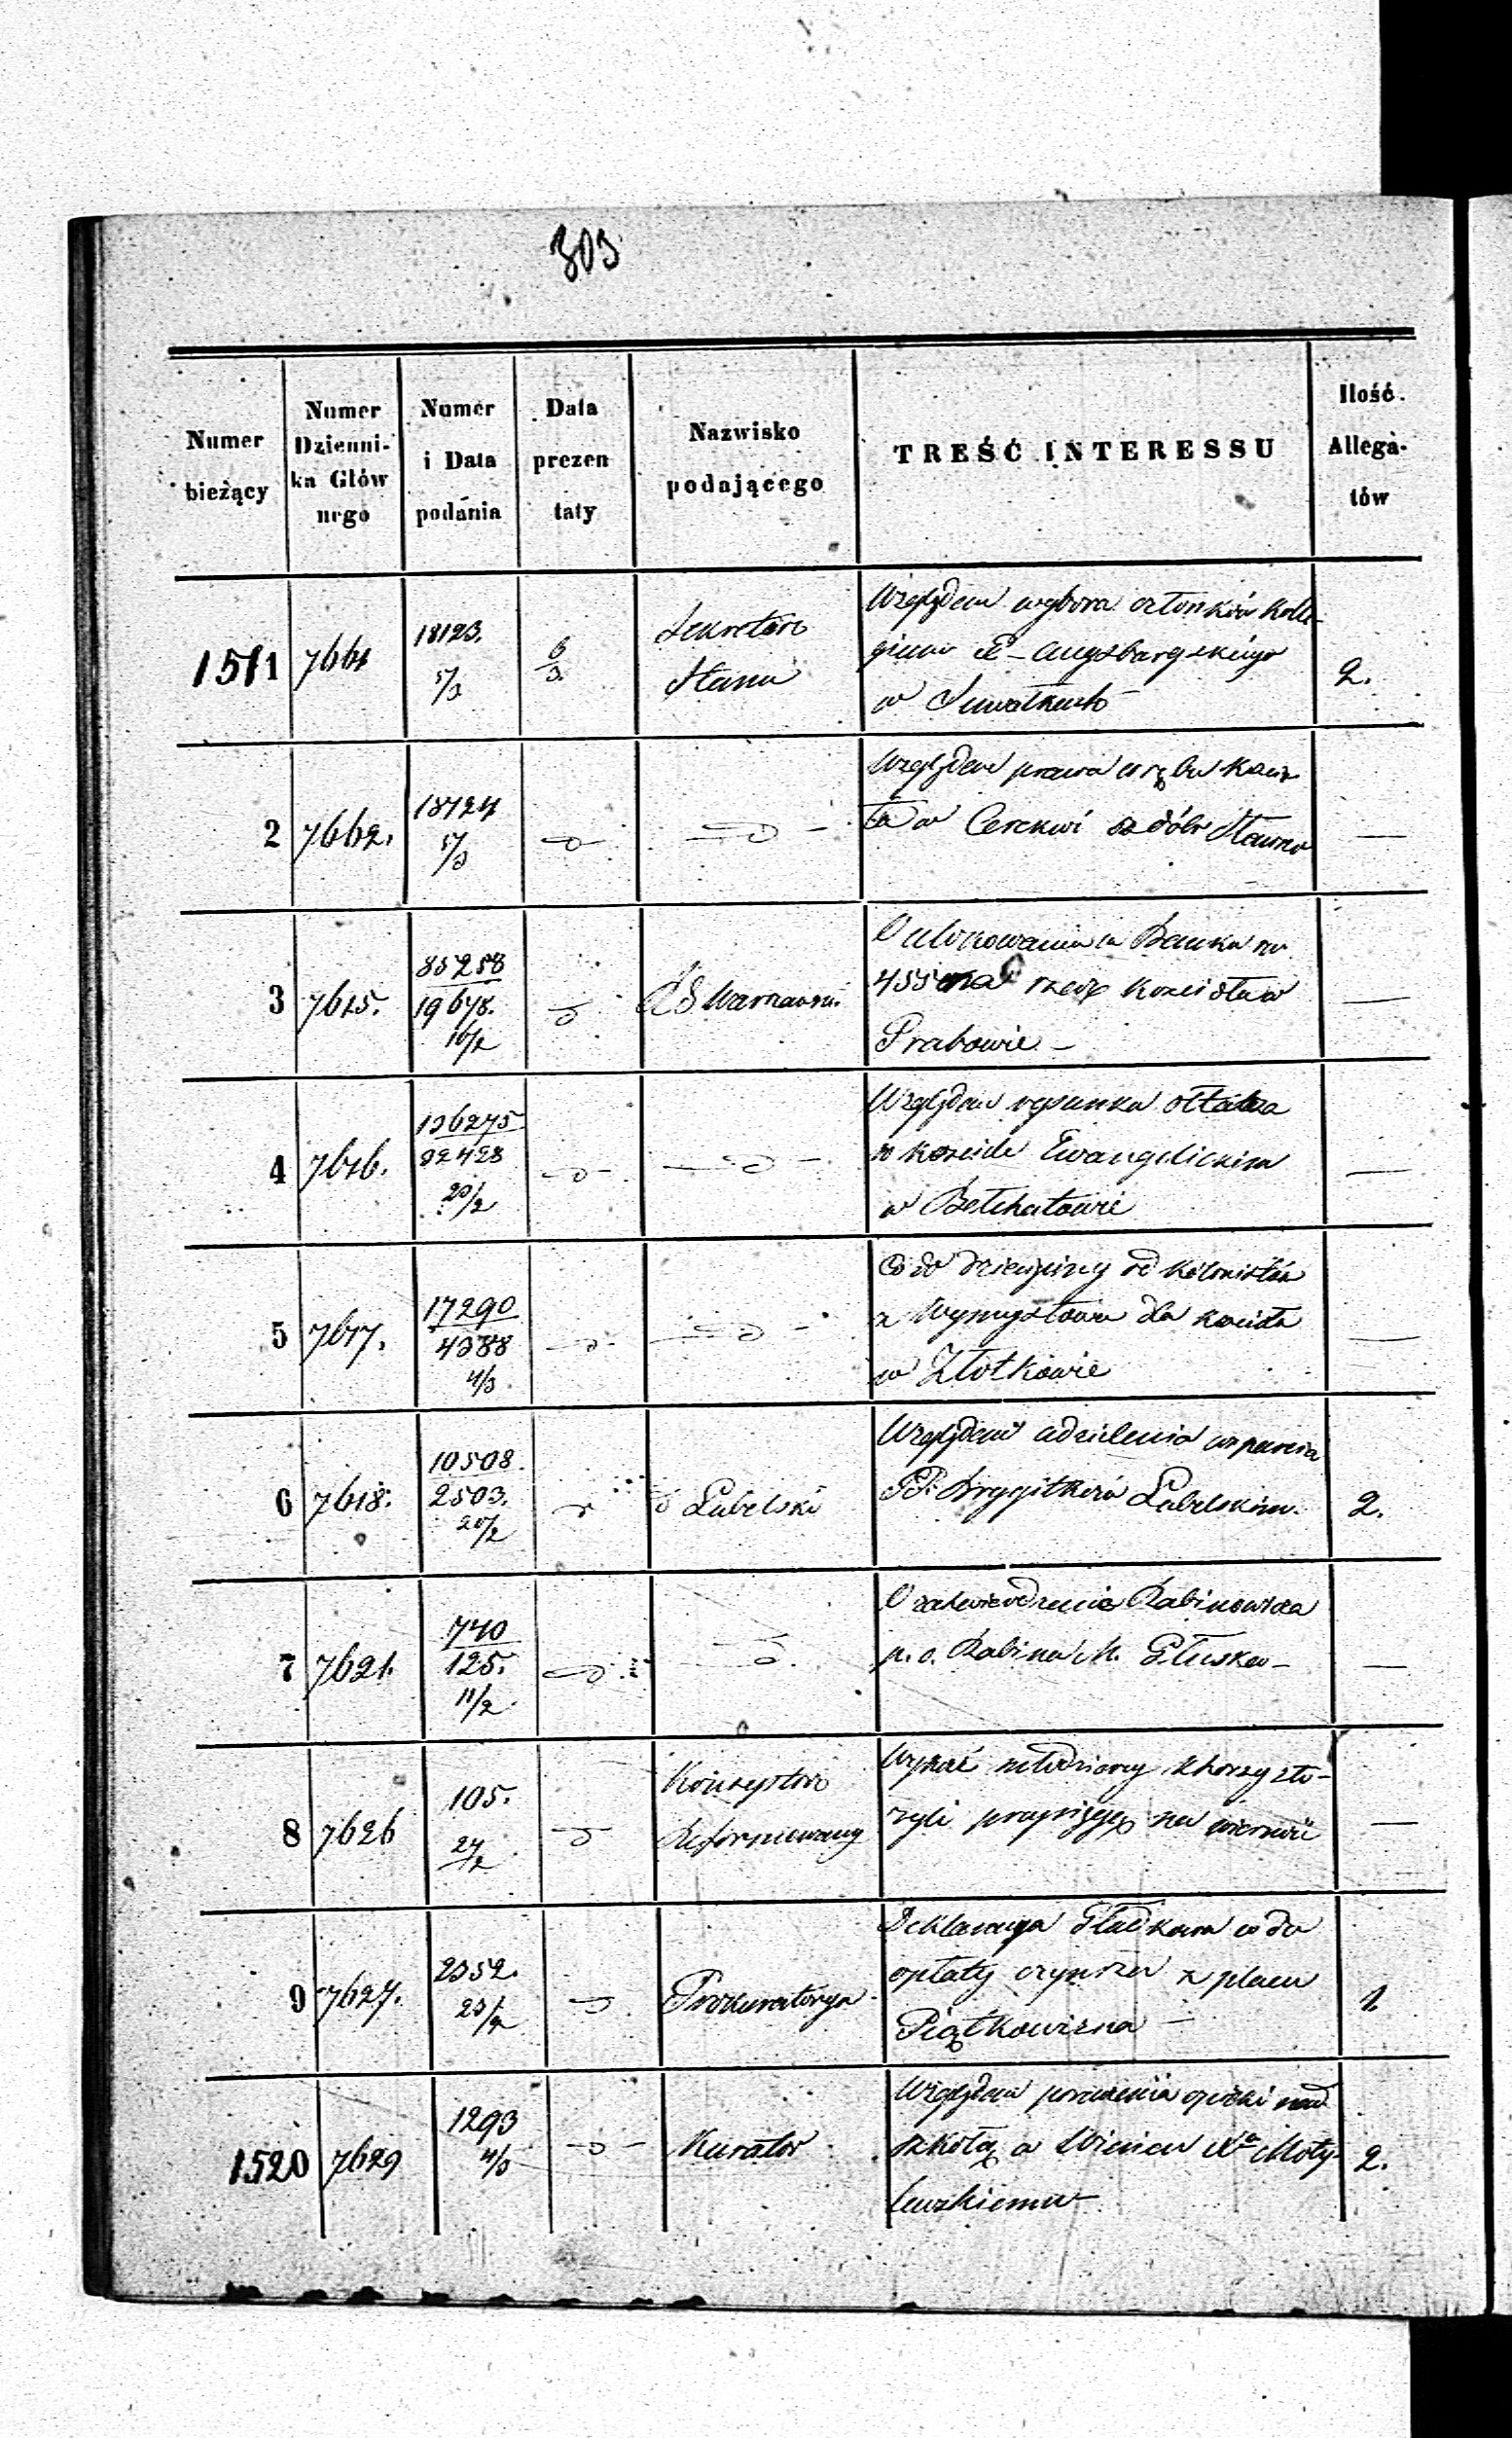 303
Numer bieżący
Numer Dzienni-ka Głów nego
Numer i Data podania
Data prezen taty
Nazwisko podającego
TREŚĆ INTERESSU
Ilość Allega-tów
1511 7661 18123. 5/3 6/3. Sekretarz Stanu
Względem wyboru członków Kolle-
gium Ew-Augsburgskiego
w Suwałkach
2.
2 7662. 18124 5/3
Względem prawa wrębu
w Cerekwi z dóbr Sławno
—
3 7615. 85258 19678. 16/2 Warszawski
Ulokowania w Banku
455 na rzecz kościoła w
Grabowie —
—
4 7616. 136275 32428 20/2
Względem rysunku ołtarza
w kościele Ewangelickim
w Bełchatowie
—
5 7617. 17290 4388 4/3
Co do dziesięciny od kolonistów
z Wymysłowa dla kościoła
w Złotkowie
—
6 7618. 10508. 2503. 20/2 Lubelski
Względem udzielenia wsparcia
PP. Brygitkom Lubelskim.
2.
7 7621. 770 125. 11/2
O zatwierdzenie Rabinowicza
p. o. Rabina M. Głusko —
—
8 7626 105. 24/2 Konsystorz Reformowany
Wykaz młodzieży
przysięgę na wierność
—
9 7627. 2352. 23/2 Prokuratorya
Deklaracya co do
opłaty czynszu z placu
Piątkowizna —
1
1520 7629 1293 4/3 Kurator
Względem poruczenia opieki nad
szkołą w Xa Moty-
lewskiemu
2.